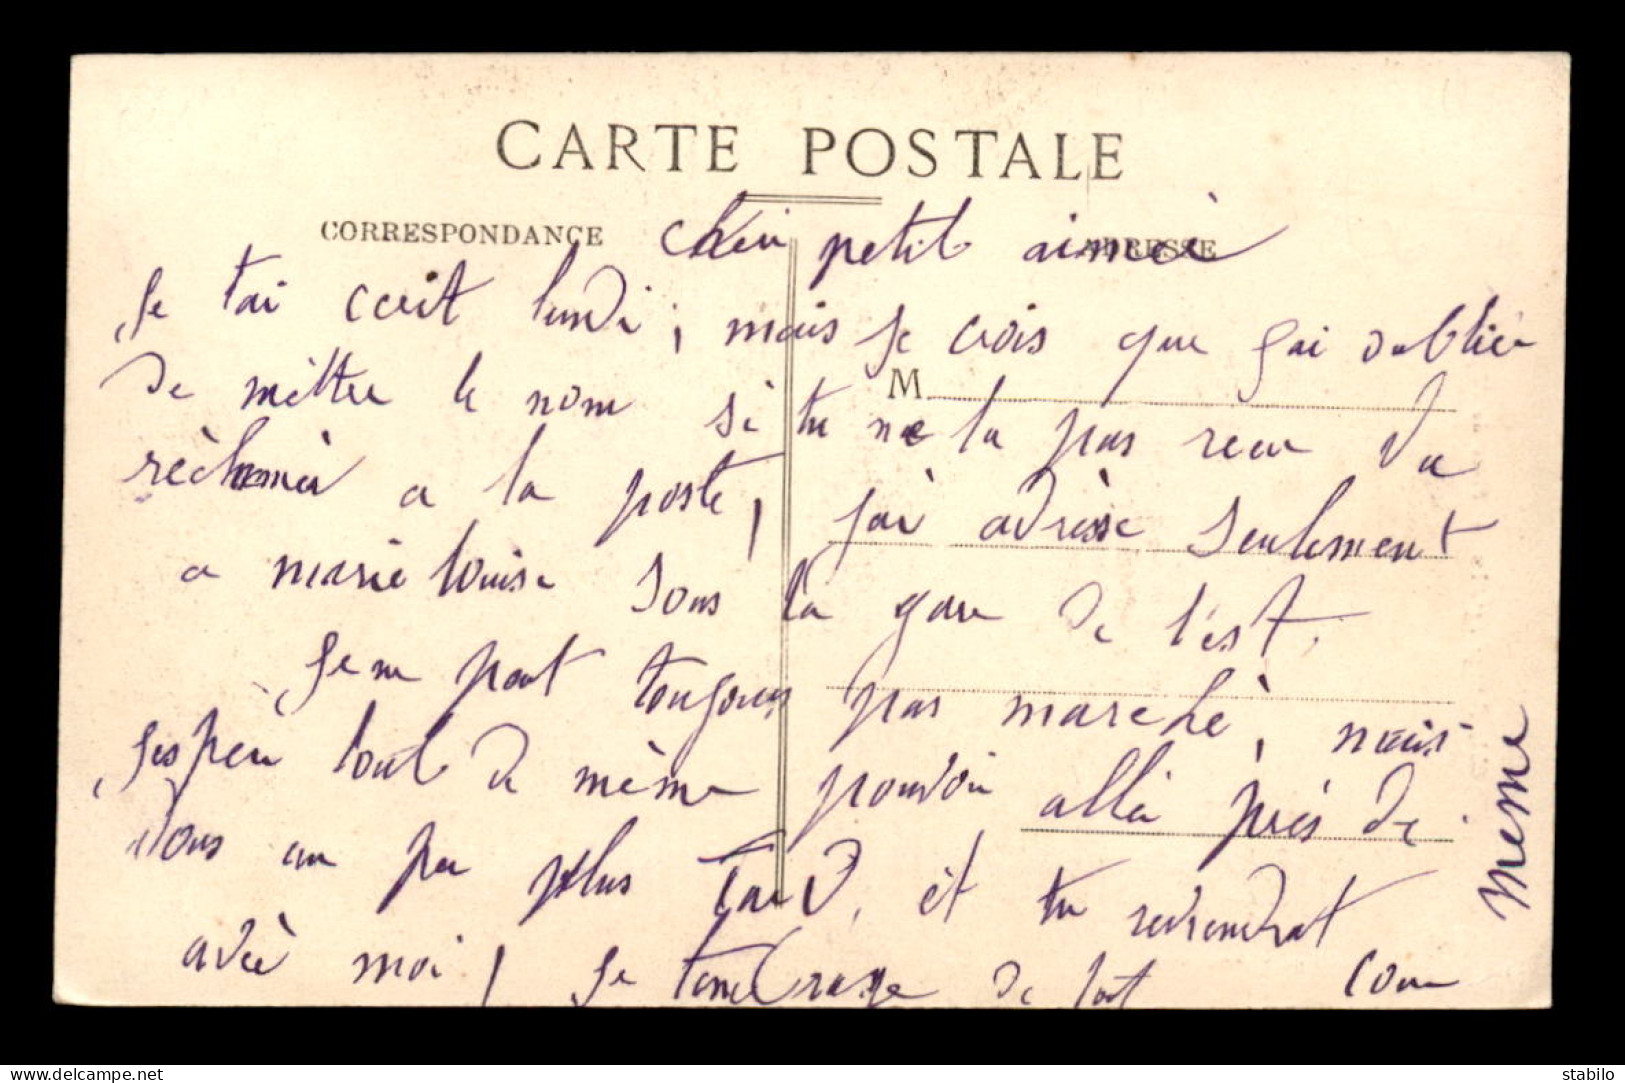 CARTE POSTALE
CORRESPONDANCE
ADRESSE
M
chéri petit aimé
Je tai ecrit lundi, mais je crois que jai oubliér
de mettre le nom si tu ne la pas recu va
réclamér a la poste, jai adrèsse seulement
a marie louise sous la gare de l'est.
Je ne pout toujours pas marché, mais
jespère tout de même pouvoir allér près de
vous un peu plus tard, et tu reviendrat
avec moi, je tembrasse de tout coeur
meme
www.delcampe.net
stabilo